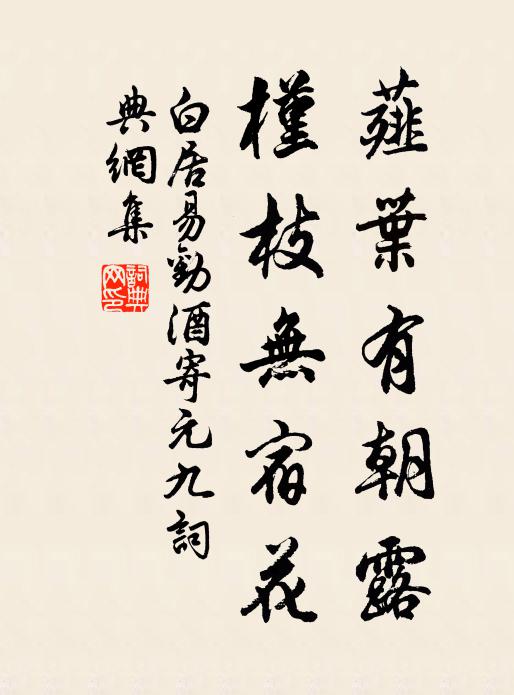 薤葉有朝露
槿枝無宿花
白居易勸酒寄元九詞
典網集
詞典網印